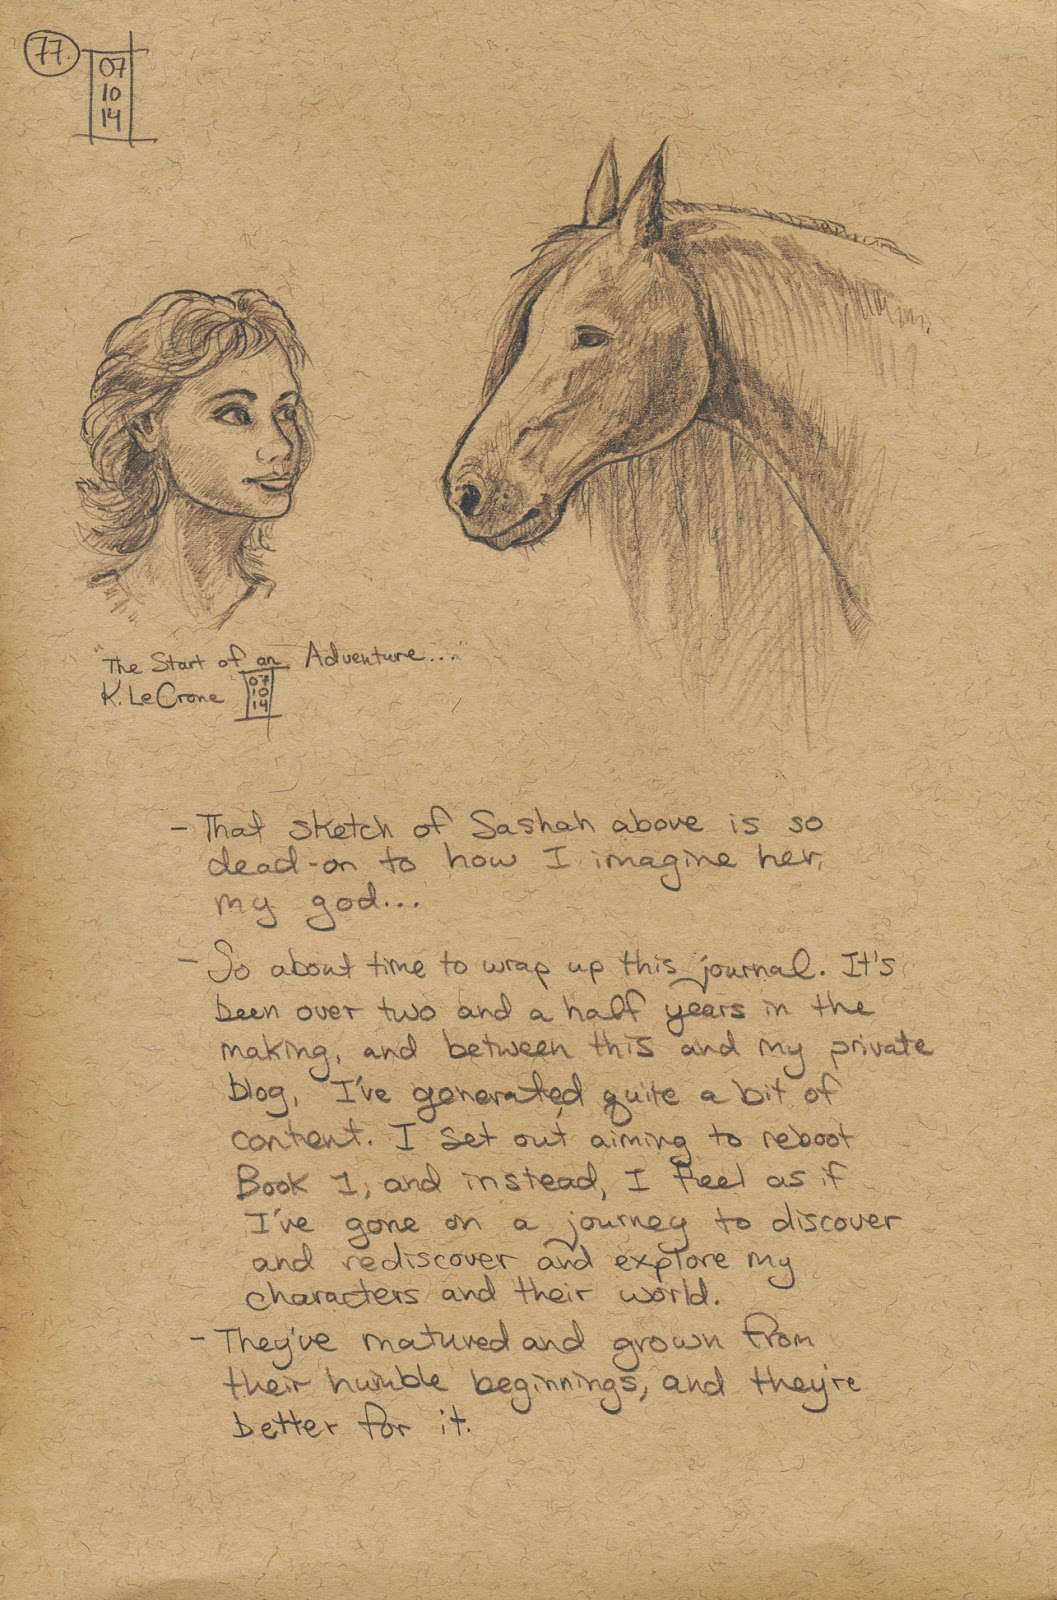 77.
07
10
14
"The Start of an Adventure..."
K. LeCrone
07
10
14
- That sketch of Sashah above is so
dead-on to how I imagine her,
my god...
- So about time to wrap up this journal. It's
been over two and a half years in the
making, and between this and my private
blog, I've generated quite a bit of
content. I set out aiming to reboot
Book 1, and instead, I feel as if
I've gone on a journey to discover
and rediscover and explore my
characters and their world.
- They've matured and grown from
their humble beginnings, and they're
better for it.